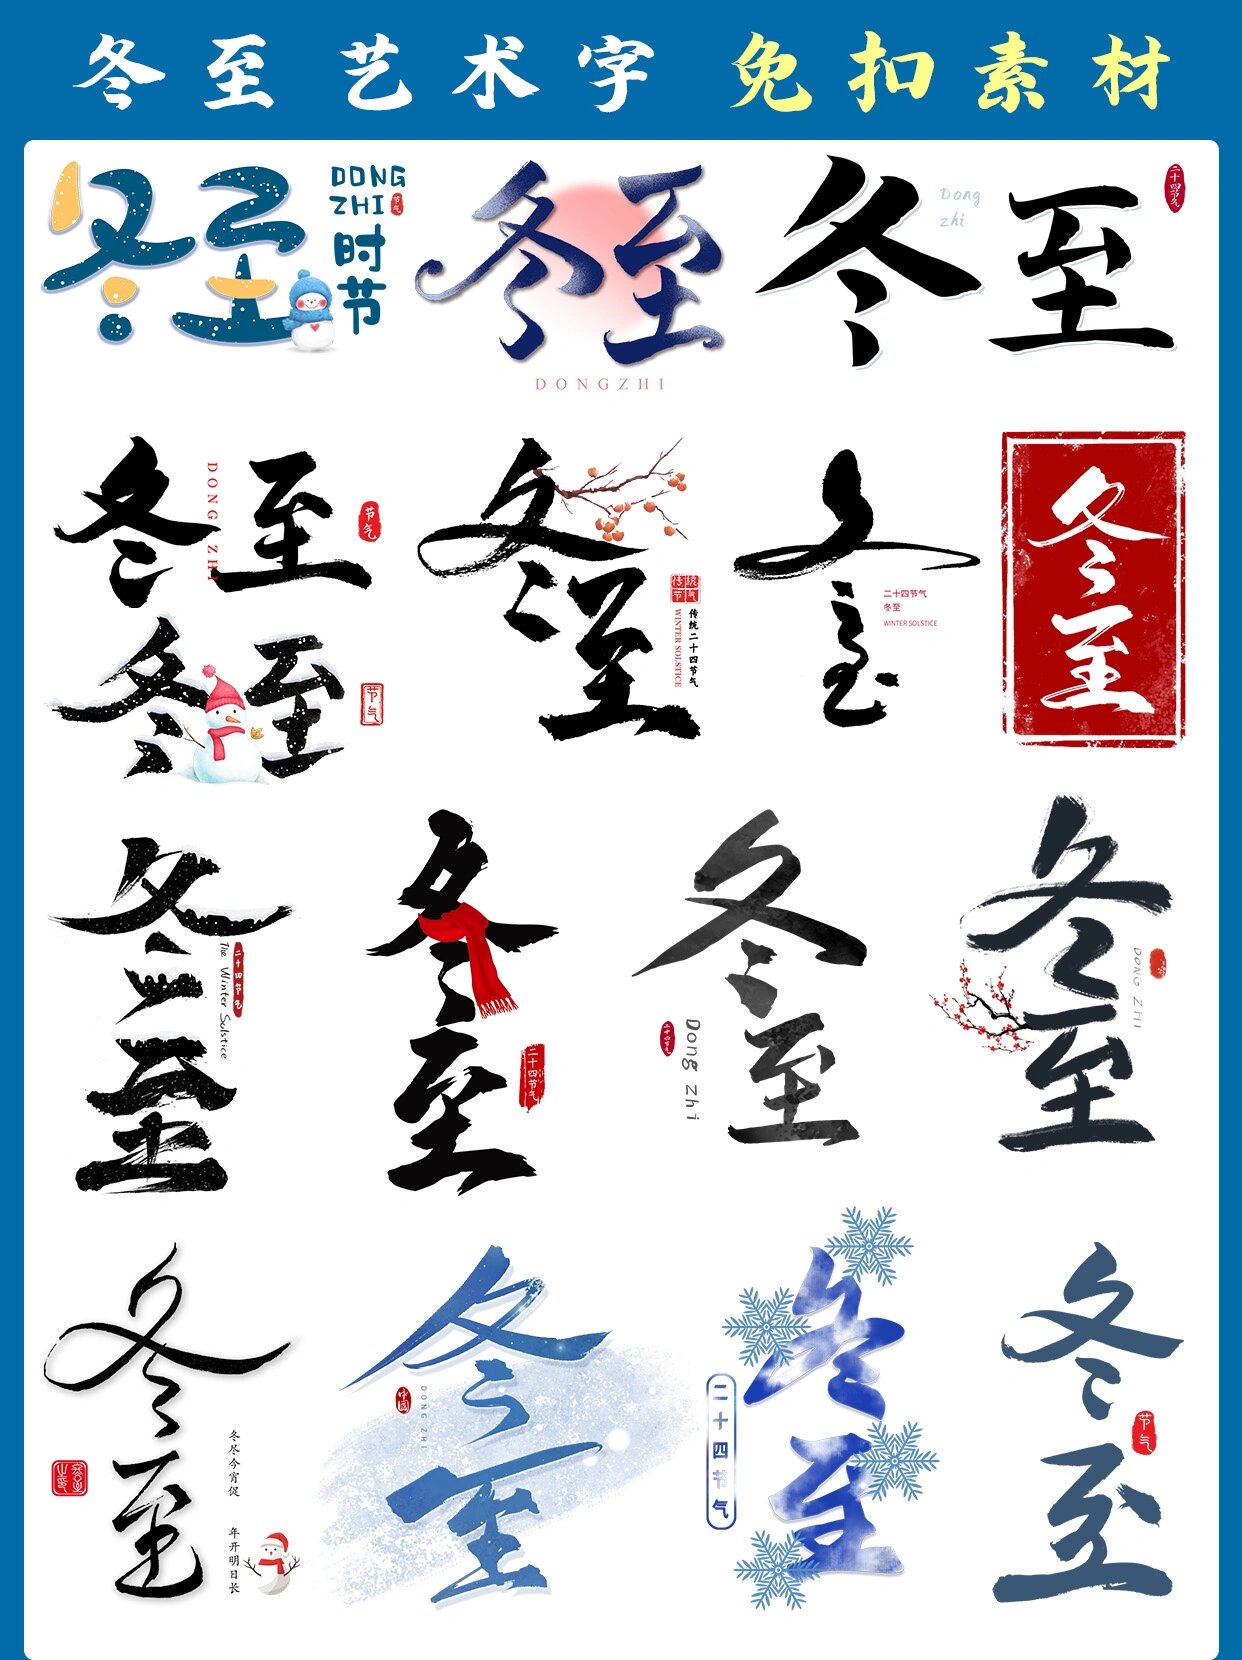 冬至艺术字 免扣素材
冬至
DONG
ZHI
节气
时节
冬至
DONGZHI
冬至
Dong
zhi
二十四节气
冬至
DONG ZHI
节气
冬至
传统节气
传统二十四节气
WINTER SOLSTICE
冬至
二十四节气
冬至
WINTER SOLSTICE
冬至
冬至
节气
冬至
二十四节气
The Winter Solstice
冬至
二十四节气
冬至
二十四节气
Dong Zhi
冬至
DONG ZHI
冬至
冬尽今宵促
年开明日长
冬至
中国
DONG ZHI
冬至
二十四节气
冬至
节气